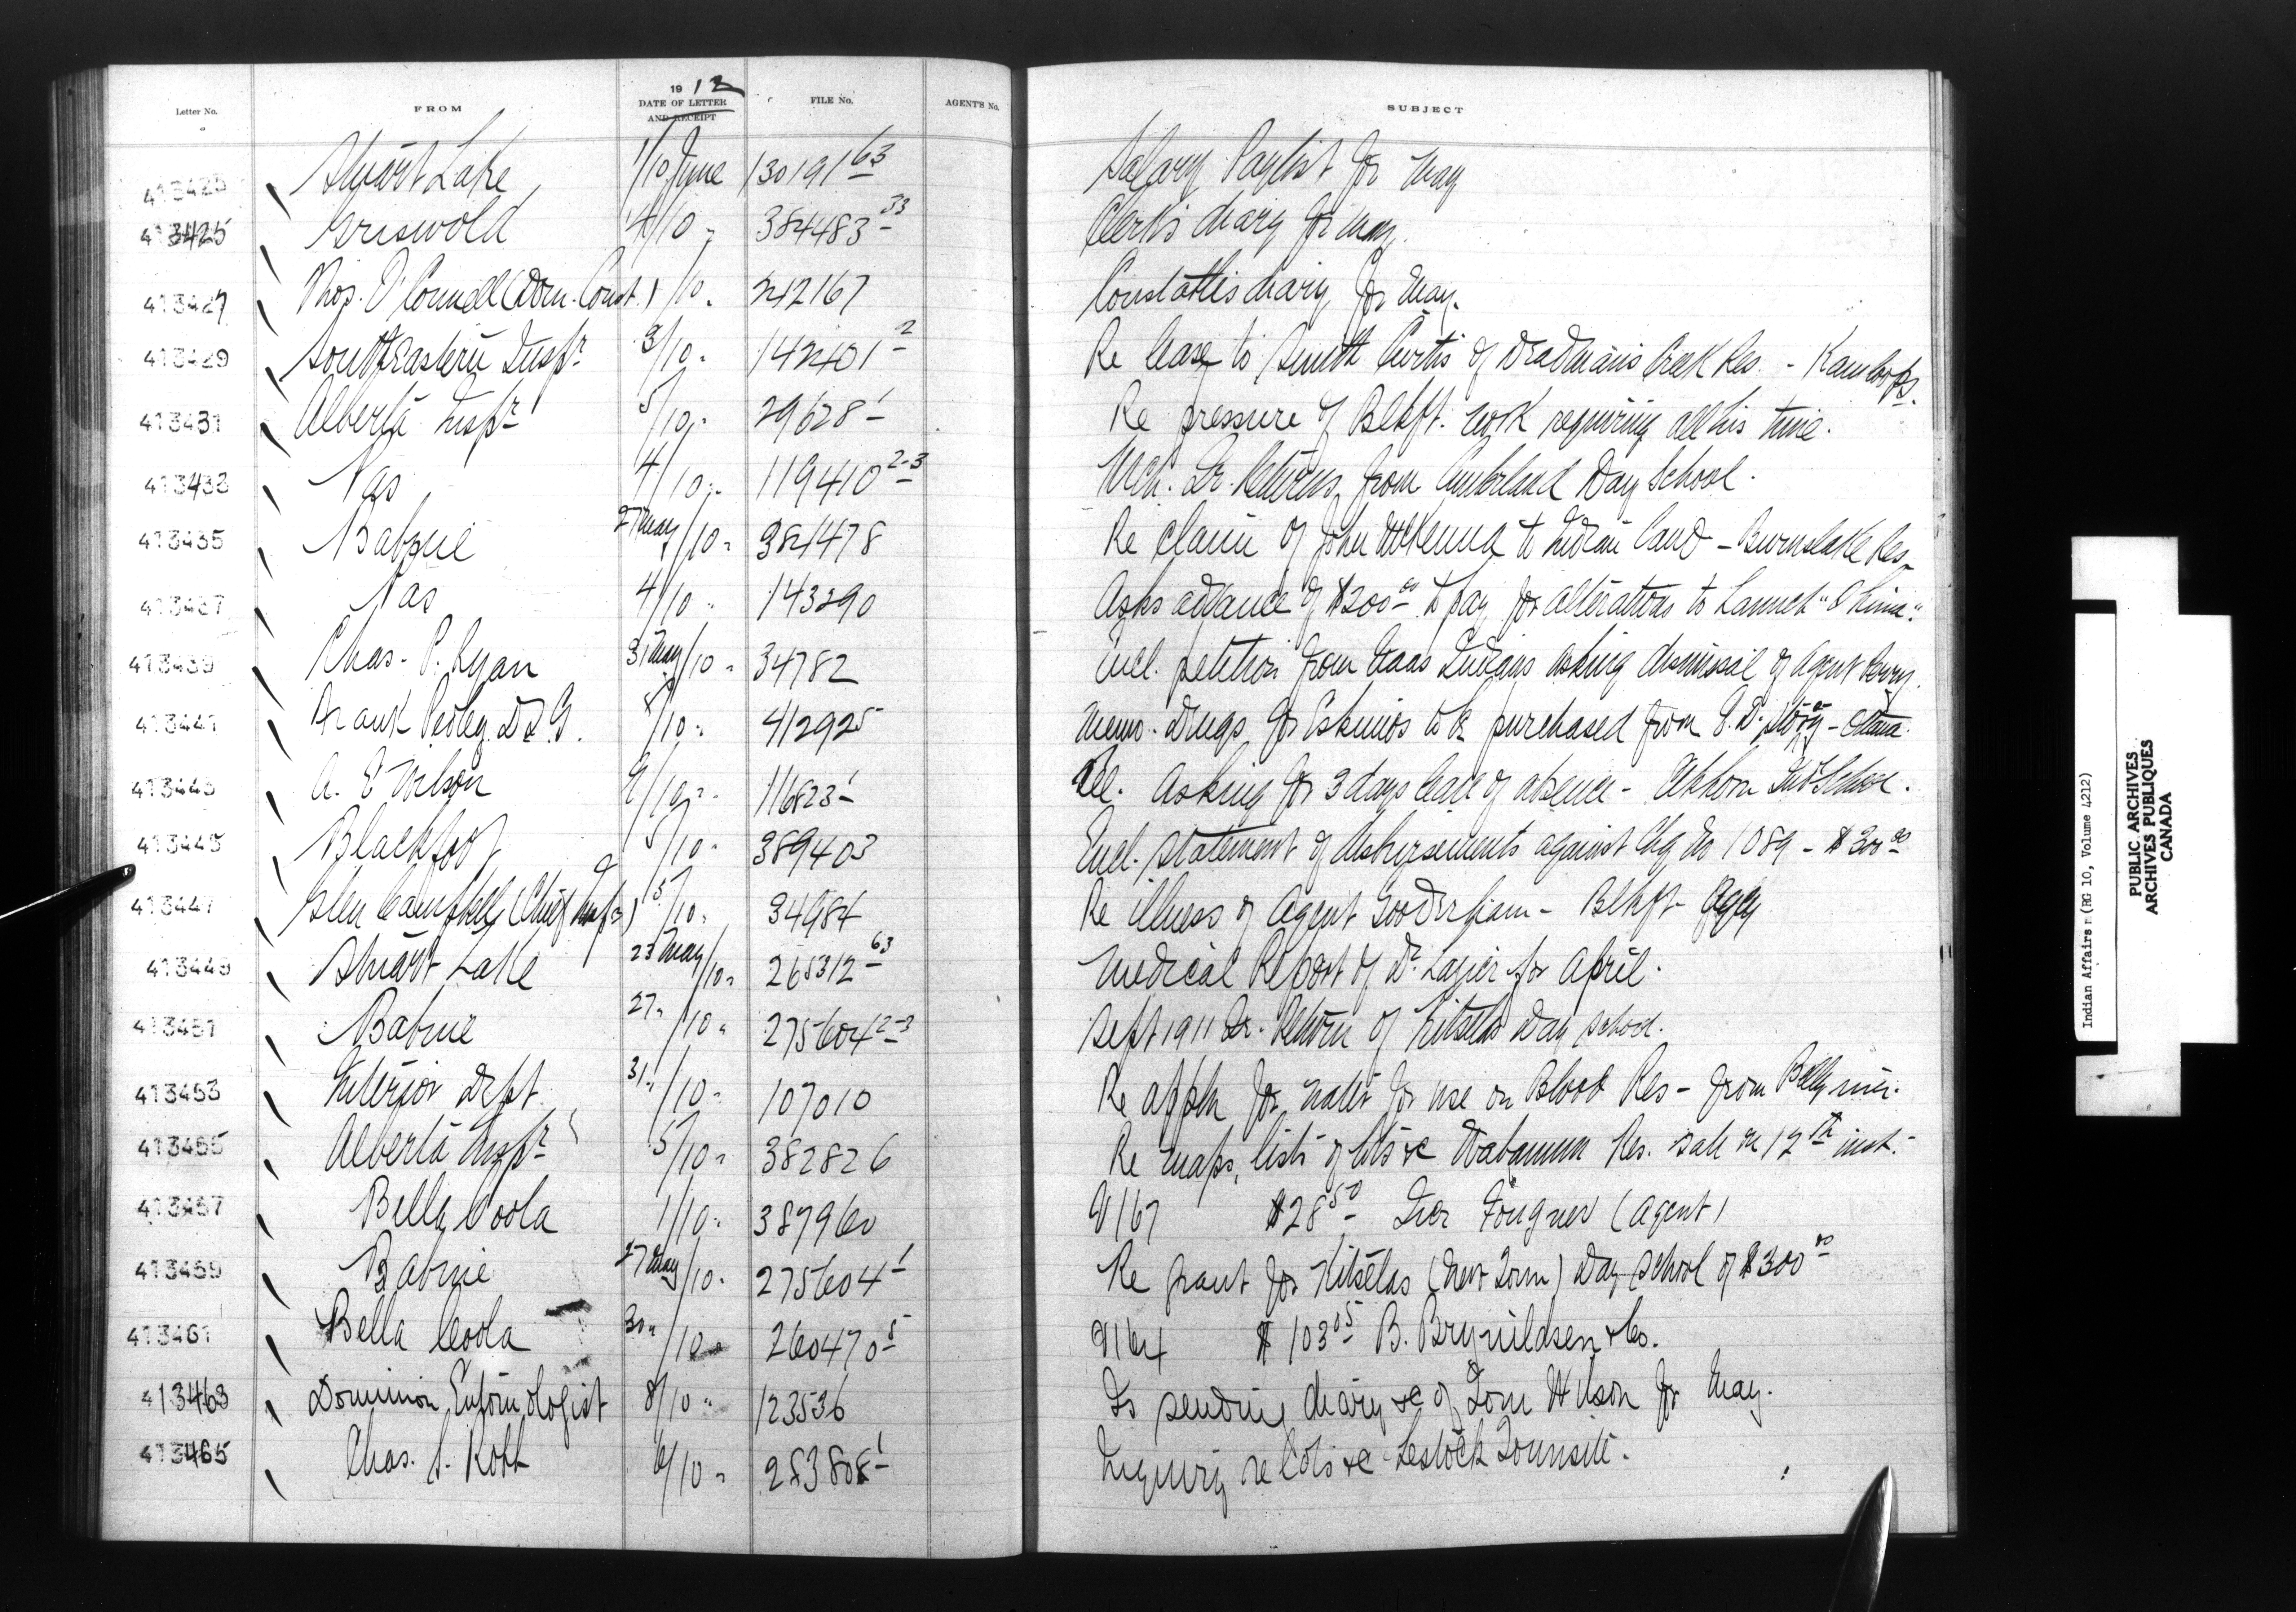 Letter No. FROM 1912 DATE OF LETTER AND RECEIPT FILE No. AGENT'S No. SUBJECT
413425 Stuart Lake 1/10 June 130191-63 Salary Paylist for May
413425 Griswold 4/10 " 384483-33 Clerk's diary for May.
413427 Thos. O'Connell (Dom. Const.) /10 " 242167 Constable's diary for May.
413429 South Eastern Inspr 3/10 " 142401-2 Re lease to Smith Curtis of Deadman's Creek Res. - Kamloops.
413431 Alberta Inspr 5/10 " 29628-1 Re pressure of Blkft. work requiring all his time.
413433 Nas 4/10 " 119410-2-3 Mch. Qr. Returns from Cumberland Day School.
413435 Babine 27 May/10 " 381478 Re claim of John McKenna to Indian Land - Burns Lake Res.
413437 Nas 4/10 " 143290 Asks advance of $200 00 to pay for alterations to Launch
413439 Chas. P. Ryan 31 May/10 " 34782 Encl. petition from Indians asking dismissal of Agent Perry.
413441 Frank Pedley D.S.G. 8/10 " 412925 Memo. Drugs for Eskimos to be purchased from - Ottawa.
413443 A. E. Wilson 9/10 " 116823-1 Asking for 3 days leave of absence - Elkhorn Ind School.
413445 Blackfoot 5/10 " 389403 Encl. statement of disbursements against Chq No 1089 - $300 00
413447 Glen Campbell (Chief Inspr) 5/10 " 34984 Re illness of Agent Gooderham - Blkft Agcy
413449 Stuart Lake 23 May/10 " 265312-63 Medical Report of Dr. for April.
413451 Babine 27 "/10 " 275604-2-3 Sept 1911 Qr. Return of Kitselas Day School.
413453 Interior Dept. 31 "/10 " 107010 Re appln for water for use on Blood Res - from Belly river.
413455 Alberta Inspr 5/10 " 382826 Re maps, lists of lots &c Wabamun Res. sale on 12th inst.
413457 Bella Coola 1/10 " 387960 9167 $28 50 Iver Fougner (Agent)
413459 Babine 27 May/10 " 275604-1 Re grant for Kitselas (New Town) Day School of $300 00
413461 Bella Coola 30 "/10 " 260470-5 9164 $103 05 B. Brynildsen & Co.
413463 Dominion Entomologist 8/10 " 123536 Is sending diary &c of Tom Wilson for May.
413465 Chas. S. 6/10 " 283808-1 Inquiry re lots &c Lestock Townsite.
Indian Affairs. (RG 10, Volume 4212)
PUBLIC ARCHIVES
ARCHIVES PUBLIQUES
CANADA